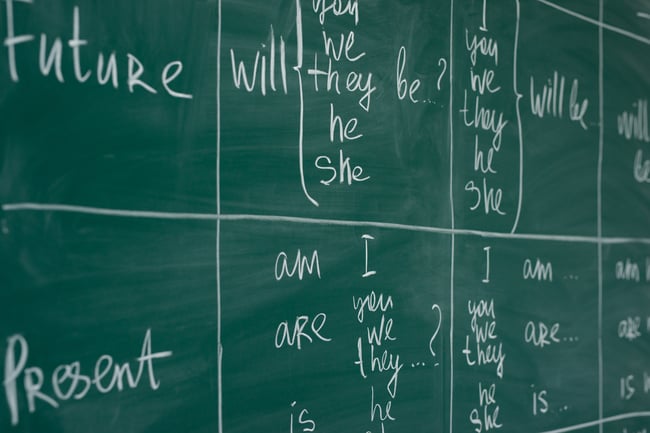 Future
will
you
we
they
he
she
be...?
I
you
we
they
he
she
will be...
will
be
Present
am I
are you
we
they...?
is he
I am ...
you
we are...
they
he
she is...
am
are
is